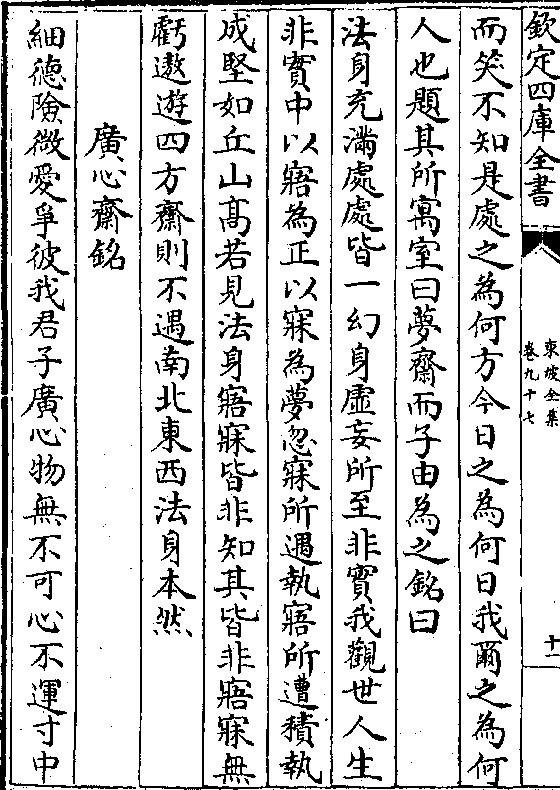 欽定四庫全書
東坡全集
卷九十七
十一
而笑不知是處之為何方今日之為何日我爾之為何
人也題其所寓室曰夢齋而子由為之銘曰
法身充滿處處皆一幻身虛妄所至非實我觀世人生
非實中以寤為正以寐為夢忽寐所遇執寤所遭積執
成堅如丘山髙若見法身寤寐皆非知其皆非寤寐無
虧遨遊四方齋則不遇南北東西法身本然
廣心齋銘
細德險微愛爭彼我君子廣心物無不可心不運寸中